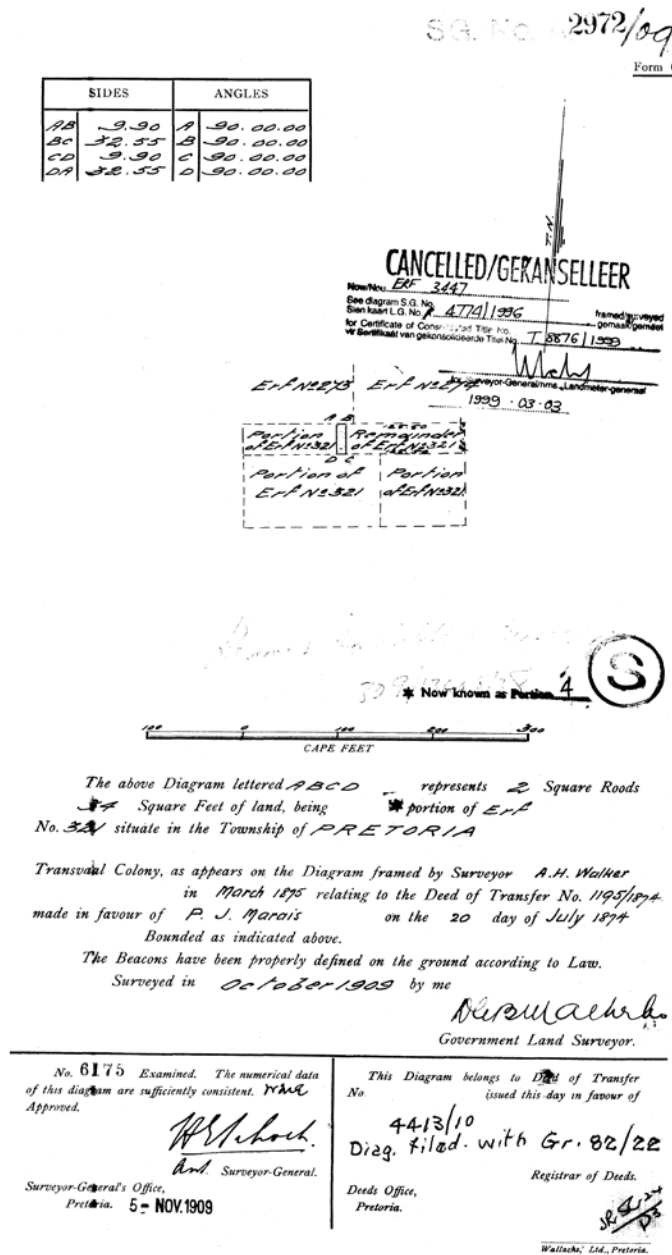 S.G. No. A 2972/09
Form
SIDES ANGLES
AB 9.90 A 90.00.00
BC 32.55 B 90.00.00
CD 9.90 C 90.00.00
DA 32.55 D 90.00.00
T.N.
CANCELLED/GEKANSELLEER
Now/Nou ERF 3447
See diagram S.G. No.
Sien kaart L.G. No. A 4774/1996 framed/surveyed gemaak/gemeet
for Certificate of Consolidated Title No.
vir Sertifikaat van gekonsolideerde Titel No. T 8876/1999
for Surveyor-General/nms. Landmeter-generaal
1999-03-03
Erf No 273 Erf No 274
A B
Portion Remainder
of Erf No 321 of Erf No 321
D C
Portion of Portion
Erf No 321 of Erf No 321
S
* Now known as Portion 4
100 0 100 200 300
CAPE FEET
The above Diagram lettered ABCD represents 2 Square Roods
34 Square Feet of land, being * portion of Erf
No. 321 situate in the Township of PRETORIA
Transvaal Colony, as appears on the Diagram framed by Surveyor A.H. Walker
in March 1875 relating to the Deed of Transfer No. 1195/1874
made in favour of P. J. Marais on the 20 day of July 1874
Bounded as indicated above.
The Beacons have been properly defined on the ground according to Law.
Surveyed in October 1909 by me
Government Land Surveyor.
No. 6175 Examined. The numerical data
of this diagram are sufficiently consistent.
Approved.
Surveyor-General.
Surveyor-General's Office,
Pretoria. 5-NOV.1909
This Diagram belongs to Deed of Transfer
No. issued this day in favour of
4413/10
Diag. filed. with Gr. 82/22
Registrar of Deeds.
Deeds Office,
Pretoria.
Wallachs, Ltd., Pretoria.